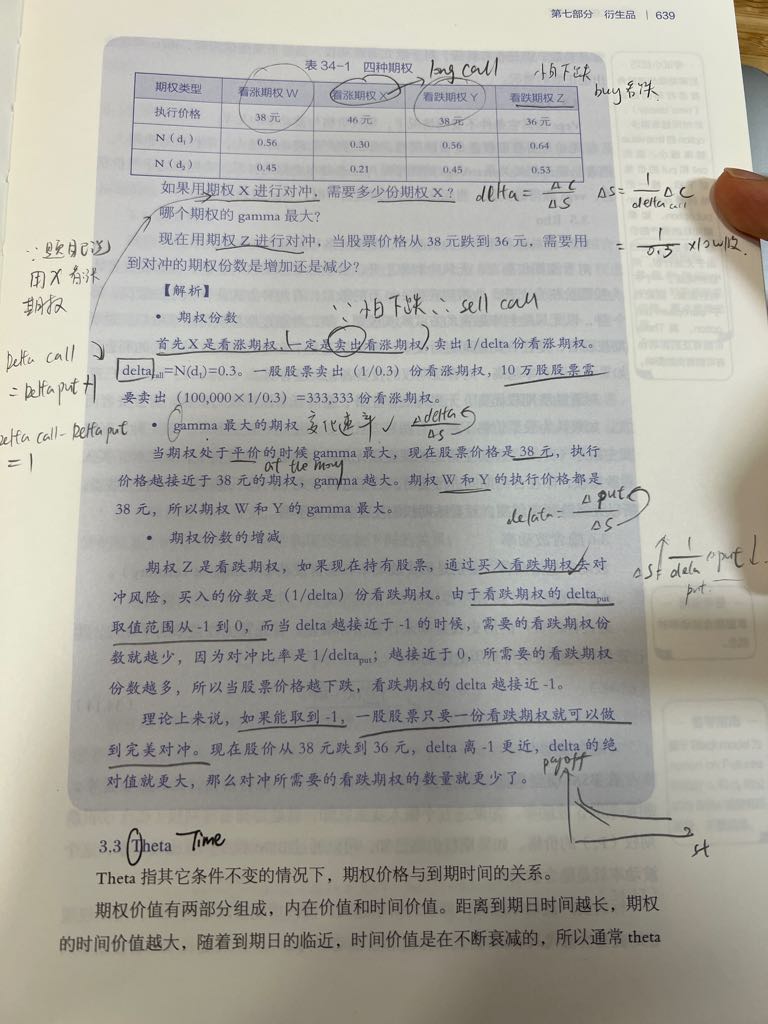 第七部分 衍生品 | 639
表 34-1 四种期权
long call
怕下跌
buy看跌
期权类型 看涨期权 W 看涨期权 X 看跌期权 Y 看跌期权 Z
执行价格 38 元 46 元 38 元 36 元
N（d₁） 0.56 0.30 0.56 0.64
N（d₂） 0.45 0.21 0.45 0.53
如果用期权 X 进行对冲，需要多少份期权 X？
delta = ΔC/ΔS ΔS = 1/delta call ΔC
哪个期权的 gamma 最大？
= 1/0.3 ×10w股
现在用期权 Z 进行对冲，当股票价格从 38 元跌到 36 元，需要用
到对冲的期权份数是增加还是减少？
∵题目已说
用X看涨
期权
【解析】
∵怕下跌 ∴ sell call
• 期权份数
首先 X 是看涨期权，（一定是卖出看涨期权），卖出 1/delta 份看涨期权。
Delta call
= Delta put +1
delta call=N(d₁)=0.3。一股股票卖出（1/0.3）份看涨期权，10 万股股票需
要卖出（100,000×1/0.3）=333,333 份看涨期权。
Delta call - Delta put
= 1
• gamma 最大的期权 变化速率 Δdelta/ΔS
当期权处于平价的时候 gamma 最大，现在股票价格是 38 元，执行
at the money
价格越接近于 38 元的期权，gamma 越大。期权 W 和 Y 的执行价格都是
38 元，所以期权 W 和 Y 的 gamma 最大。
delata = Δput/ΔS
• 期权份数的增减
期权 Z 是看跌期权，如果现在持有股票，通过买入看跌期权去对
ΔS↑ = 1/delta put Δput↓
冲风险，买入的份数是（1/delta）份看跌期权。由于看跌期权的 delta put
取值范围从 -1 到 0，而当 delta 越接近于 -1 的时候，需要的看跌期权份
数就越少，因为对冲比率是 1/delta put；越接近于 0，所需要的看跌期权
份数越多，所以当股票价格越下跌，看跌期权的 delta 越接近 -1。
理论上来说，如果能取到 -1，一股股票只要一份看跌期权就可以做
到完美对冲。现在股价从 38 元跌到 36 元，delta 离 -1 更近，delta 的绝
对值就更大，那么对冲所需要的看跌期权的数量就更少了。
payoff
st
3.3 Theta Time
Theta 指其它条件不变的情况下，期权价格与到期时间的关系。
期权价值有两部分组成，内在价值和时间价值。距离到期日时间越长，期权
的时间价值越大，随着到期日的临近，时间价值是在不断衰减的，所以通常 theta